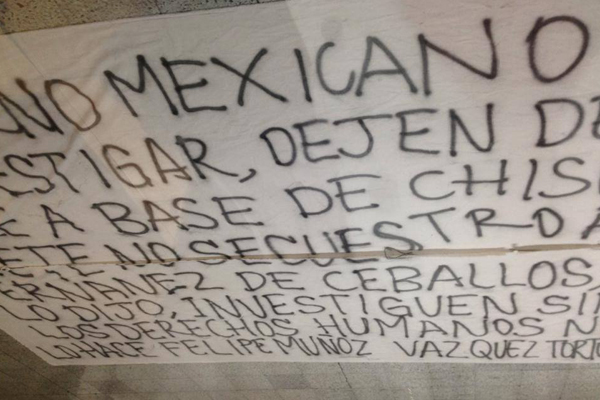 UNO MEXICANO
ESTIGAR, DEJEN DE
E A BASE DE CHIS
ETE NO SECUESTRO A
ERNANEZ DE CEBALLOS,
LO DIJO, INVESTIGUEN SIN
LOS DERECHOS HUMANOS N
LO HACE FELIPE MUÑOZ VAZQUEZ TORTO